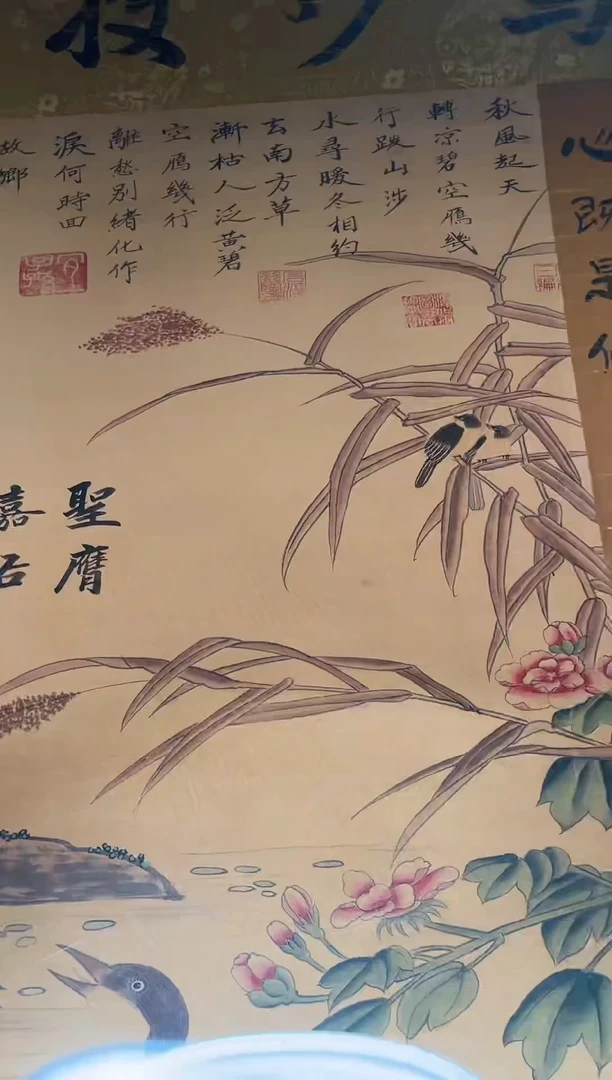 心既是
秋風起天
轉凉碧空鴈幾
行跋山涉
水尋暖冬相約
去南方草
漸枯人泛黃碧
空鴈幾行
離愁別緒化作
淚何時回
故鄉
聖膺
嘉